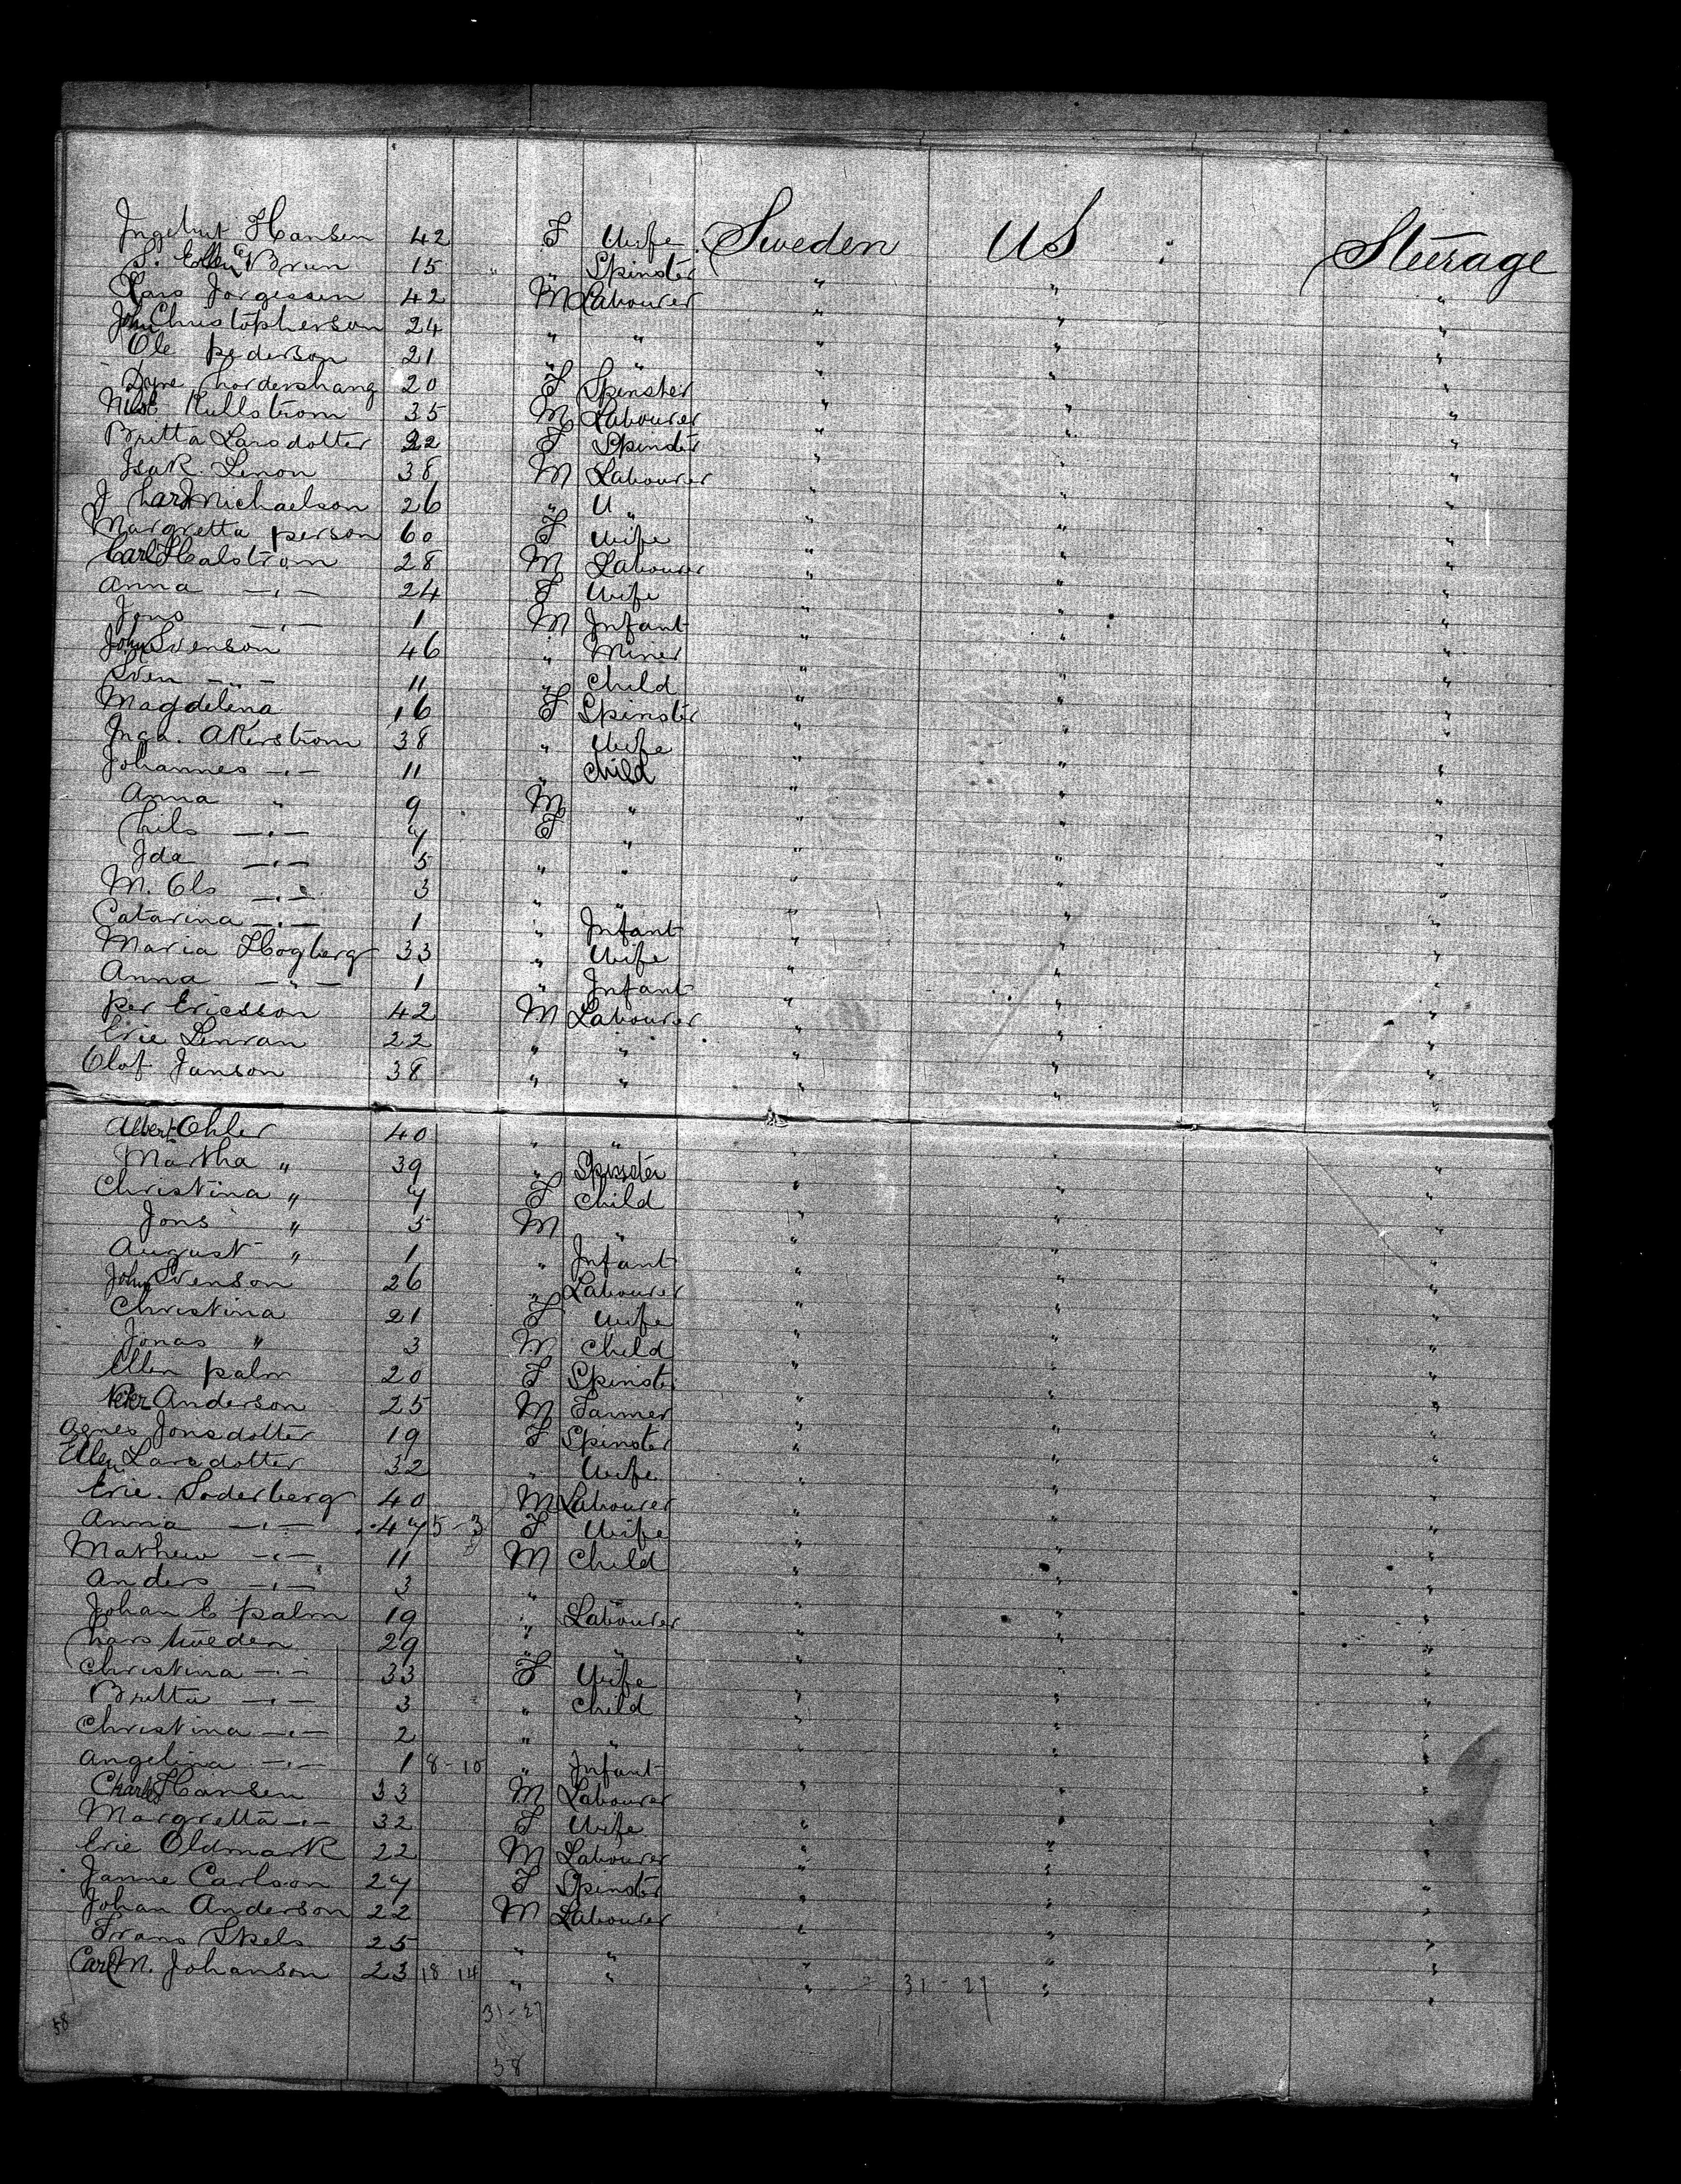 Ingebrit Hansen 42 F Wife Sweden US Steerage
S. Ellen Brun 15 " " Spinster " " "
Lars Jorgessen 42 M Labourer " " "
John Christopherson 24 " " " " "
Ole pederson 21 " " " " "
Dyre 20 F Spinster " " "
Kullstrom 35 M Labourer " " "
Britta Larsdotter 22 F Spinster " " "
Isak Lenon 38 M Labourer " " "
J Lars Michaelson 26 " U " " " "
Margretta person 60 F Wife " " "
Carl Halstrom 28 M Labourer " " "
Anna —"— 24 F Wife " " "
Jons —"— 1 M Infant " " "
John Svenson 46 " Miner " " "
Sven —"— 11 " Child " " "
Magdelina 16 F Spinster " " "
Inga. Akerstrom 38 " Wife " " "
Johannes —"— 11 " Child " " "
Anna " 9 M " " " "
Lils —"— 7 F " " " "
Ida —"— 5 " " " " "
M. Ols —"— 3 " " " " "
Catarina —"— 1 " Infant " " "
Maria Hogberg 33 " Wife " " "
Anna —"— 1 " Infant " " "
per Ericsson 42 M Labourer " " "
Eric Lenran 22 " " " " "
Olof Janson 38 " " " " "
Albert Ohler 40 " " " " "
Martha " 39 " Spinster " " "
Christina " 7 F Child " " "
Jons " 5 M " " " "
August " 1 " Infant " " "
John Svenson 26 " Labourer " " "
Christina 21 F Wife " " "
Jonas " 3 M Child " " "
Ellen palm 20 F Spinster " " "
Peter Anderson 25 M Farmer " " "
Agnes Jonsdotter 19 F Spinster " " "
Ellen Larsdotter 32 " Wife " " "
Eric. Soderberg 40 M Labourer " " "
Anna —"— 47 5 - 3 F Wife " " "
Mathew —"— 11 M Child " " "
Anders —"— 3 " " " " "
Johan E palm 19 " Labourer " " "
Lars 29 " " " " "
Christina —"— 33 F Wife " " "
Britta —"— 3 " Child " " "
Christina —"— 2 " " " " "
Angelina —"— 1 8 - 10 " Infant " " "
Charles Hansen 33 M Labourer " " "
Margretta —"— 32 F Wife " " "
Eric Oldmark 22 M Labourer " " "
Janne Carlson 27 F Spinster " " "
Johan Anderson 22 M Labourer " " "
Frans Skels 25 " " " " "
Carl M. Johanson 23 18 14 " " " 31 - 27 " "
58 31-27
58